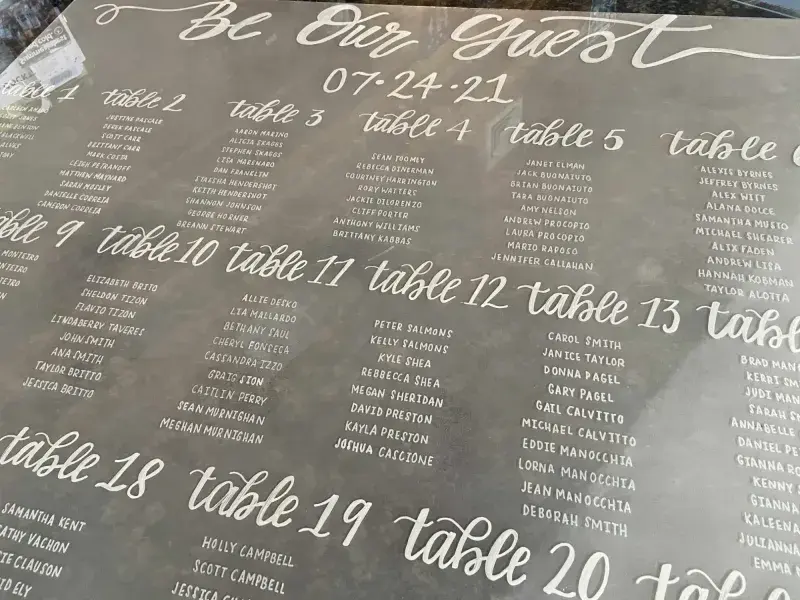 Be Our Guest
07·24·21
table 1
table 2
JUSTINE PASCALE
DEREK PASCALE
SCOTT CARR
BRITTANY CARR
MARK COSTA
LEIGH PETRANOFF
MATTHEW MAYNARD
SARAH MOSLEY
DANIELLE CORREJA
CAMERON CORREJA
table 3
AARON MARINO
ALICIA SKAGGS
STEPHEN SKAGGS
LISA MARENARO
DAN FRANKLIN
STASHA HENDERSHOT
KEITH HENDERSHOT
SHANNON JOHNSON
GEORGE HORNER
BREANN STEWART
table 4
SEAN TOOMEY
REBECCA DINERMAN
COURTNEY HARRINGTON
RORY WATTERS
JACKIE DILORENZO
CLIFF PORTER
ANTHONY WILLIAMS
BRITTANY KABBAS
table 5
JANET ELMAN
JACK BUONAIUTO
BRIAN BUONAIUTO
TARA BUONAIUTO
AMY NELSON
ANDREW PROCOPIO
LAURA PROCOPIO
MARIO RAPOSO
JENNIFER CALLAHAN
table
ALEXIS BYRNES
JEFFREY BYRNES
ALEX WITT
ALANA DOLCE
SAMANTHA MUSTO
MICHAEL SHEARER
ALIX FADEN
ANDREW LISA
HANNAH KOBMAN
TAYLOR ALOTTA
table 9
MONTEIRO
table 10
ELIZABETH BRITO
SHELDON TIZON
FLAVIO TIZON
LINDABERRY TAVERES
JOHN SMITH
ANA SMITH
TAYLOR BRITTO
JESSICA BRITTO
table 11
ALLIE DESKO
LIA MALLARDO
BETHANY SAUL
CHERYL FONSECA
CASSANDRA IZZO
GRAIG SION
CAITLIN PERRY
SEAN MURNIGHAN
MEGHAN MURNIGHAN
table 12
PETER SALMONS
KELLY SALMONS
KYLE SHEA
REBBECCA SHEA
MEGAN SHERIDAN
DAVID PRESTON
KAYLA PRESTON
JOSHUA CASCIONE
table 13
CAROL SMITH
JANICE TAYLOR
DONNA PAGEL
GARY PAGEL
GAIL CALVITTO
MICHAEL CALVITTO
EDDIE MANOCCHIA
LORNA MANOCCHIA
JEAN MANOCCHIA
DEBORAH SMITH
BRAD
KERRI
JUDI
SARAH
ANNABELLE
DANIEL
GIANNA
KENNY
GIANNA
KALEENA
JULIANNA
EMMA
table 18
SAMANTHA KENT
CATHY VACHON
CLAUSON
ELY
table 19
HOLLY CAMPBELL
SCOTT CAMPBELL
JESSICA
table 20